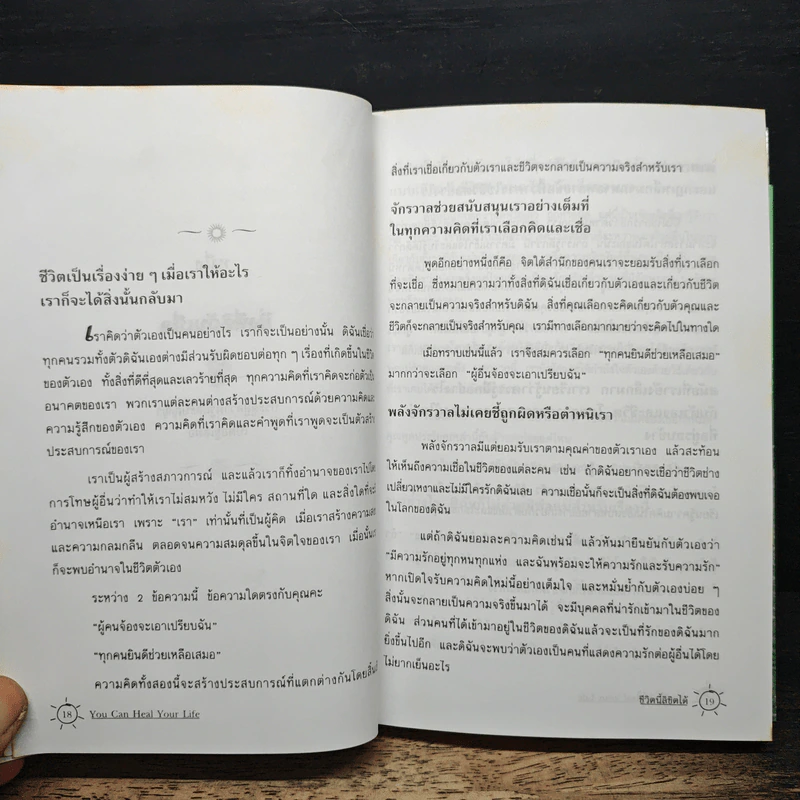 ชีวิตเป็นเรื่องง่าย ๆ เมื่อเราให้อะไร
เราก็จะได้สิ่งนั้นกลับมา
เราคิดว่าตัวเองเป็นคนอย่างไร เราก็จะเป็นอย่างนั้น ดิฉันเชื่อว่า
ทุกคนรวมทั้งตัวดิฉันเองต่างมีส่วนรับผิดชอบต่อทุก ๆ เรื่องที่เกิดขึ้นในชีวิต
ของตัวเอง ทั้งสิ่งที่ดีที่สุดและเลวร้ายที่สุด ทุกความคิดที่เราคิดจะก่อตัวเป็น
อนาคตของเรา พวกเราแต่ละคนต่างสร้างประสบการณ์ด้วยความคิดและ
ความรู้สึกของตัวเอง ความคิดที่เราคิดและคำพูดที่เราพูดจะเป็นตัวสร้าง
ประสบการณ์ของเรา
เราเป็นผู้สร้างสภาวการณ์ และแล้วเราก็ทิ้งอำนาจของเราไปโดย
การโทษผู้อื่นว่าทำให้เราไม่สมหวัง ไม่มีใคร สถานที่ใด และสิ่งใดที่จะมี
อำนาจเหนือเรา เพราะ "เรา" เท่านั้นที่เป็นผู้คิด เมื่อเราสร้างความสงบ
และความกลมกลืน ตลอดจนความสมดุลขึ้นในจิตใจของเรา เมื่อนั้นเรา
ก็จะพบอำนาจในชีวิตตัวเอง
ระหว่าง 2 ข้อความนี้ ข้อความใดตรงกับคุณคะ
"ผู้คนจ้องจะเอาเปรียบฉัน"
"ทุกคนยินดีช่วยเหลือเสมอ"
ความคิดทั้งสองนี้จะสร้างประสบการณ์ที่แตกต่างกันโดยสิ้นเชิง
18 You Can Heal Your Life
สิ่งที่เราเชื่อเกี่ยวกับตัวเราและชีวิตจะกลายเป็นความจริงสำหรับเรา
จักรวาลช่วยสนับสนุนเราอย่างเต็มที่
ในทุกความคิดที่เราเลือกคิดและเชื่อ
พูดอีกอย่างหนึ่งก็คือ จิตใต้สำนึกของคนเราจะยอมรับสิ่งที่เราเลือก
ที่จะเชื่อ ซึ่งหมายความว่าทั้งสิ่งที่ดิฉันเชื่อเกี่ยวกับตัวเองและเกี่ยวกับชีวิต
จะกลายเป็นความจริงสำหรับดิฉัน สิ่งที่คุณเลือกจะคิดเกี่ยวกับตัวคุณและ
ชีวิตก็จะเป็นจริงสำหรับคุณ เรามีทางเลือกมากมายว่าจะคิดไปในทางใด
เมื่อทราบเช่นนี้แล้ว เราจึงสมควรเลือก "ทุกคนยินดีช่วยเหลือเสมอ"
มากกว่าจะเลือก "ผู้อื่นจ้องจะเอาเปรียบฉัน"
พลังจักรวาลไม่เคยชี้ถูกผิดหรือตำหนิเรา
พลังจักรวาลมีแต่ยอมรับเราตามคุณค่าของตัวเราเอง แล้วสะท้อน
ให้เห็นถึงความเชื่อในชีวิตของแต่ละคน เช่น ถ้าดิฉันอยากจะเชื่อว่าชีวิตช่าง
เปลี่ยวเหงาและไม่มีใครรักดิฉันเลย ความเชื่อนั้นก็จะเป็นสิ่งที่ดิฉันต้องพบเจอ
ในโลกของดิฉัน
แต่ถ้าดิฉันยอมละความคิดเช่นนี้ แล้วหันมายืนยันกับตัวเองว่า
"มีความรักอยู่ทุกหนทุกแห่ง และฉันพร้อมจะให้ความรักและรับความรัก"
หากเปิดใจรับความคิดใหม่นี้อย่างเต็มใจ และหมั่นย้ำกับตัวเองบ่อย ๆ
สิ่งนั้นจะกลายเป็นความจริงขึ้นมาได้ จะมีบุคคลที่น่ารักเข้ามาในชีวิตของ
ดิฉัน ส่วนคนที่ได้เข้ามาอยู่ในชีวิตของดิฉันแล้วจะเป็นที่รักของดิฉันมาก
ยิ่งขึ้นไปอีก และดิฉันจะพบว่าตัวเองเป็นคนที่แสดงความรักต่อผู้อื่นได้โดย
ไม่ยากเย็นอะไร
ชีวิตนี้ลิขิตได้ 19